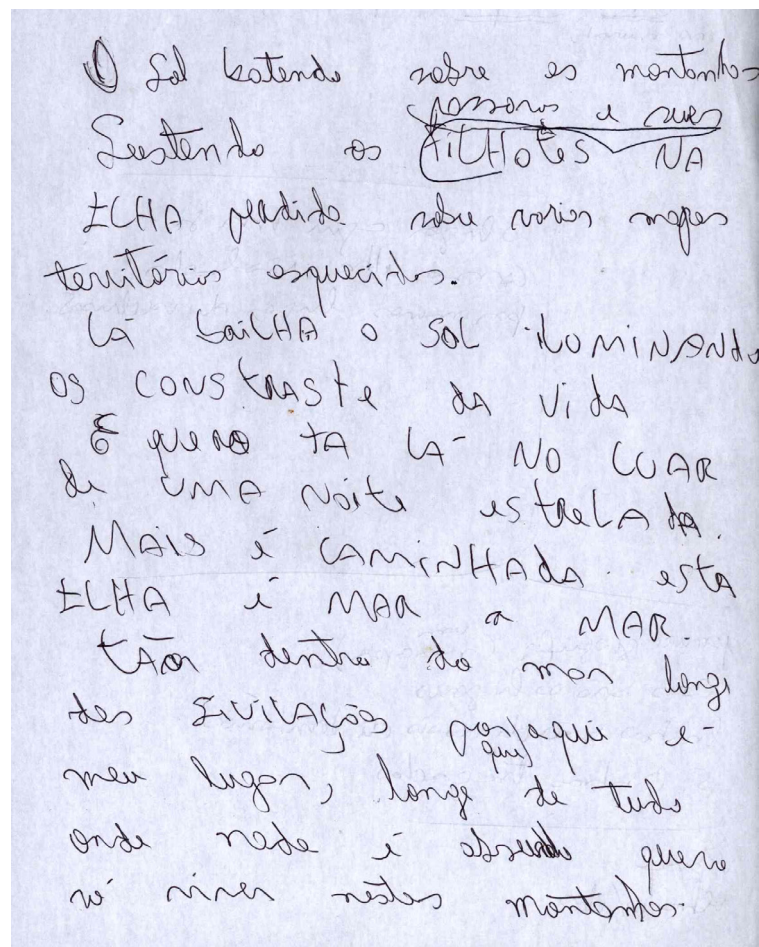 O Sol batendo sobre as montanhas
passaros e suas
Sustendo os FILHotes NA
ILHA perdida sobre varios mapas
territórios esquecidos.
LÁ BRILHA o SOL iLUMINANdo
OS CONSTRASTE dA VidA
E quero TA LÁ NO LUAR
de UMA Noite estReLAdA.
MAis é CAMiNHAdA esta
ILHA é MAR a MAR.
tão dentro do mar longe
das SIVILAÇÕES por que aqui é
meu lugar, longe de tudo
onde nada é absurdo quero
só viver nestas montanhas.